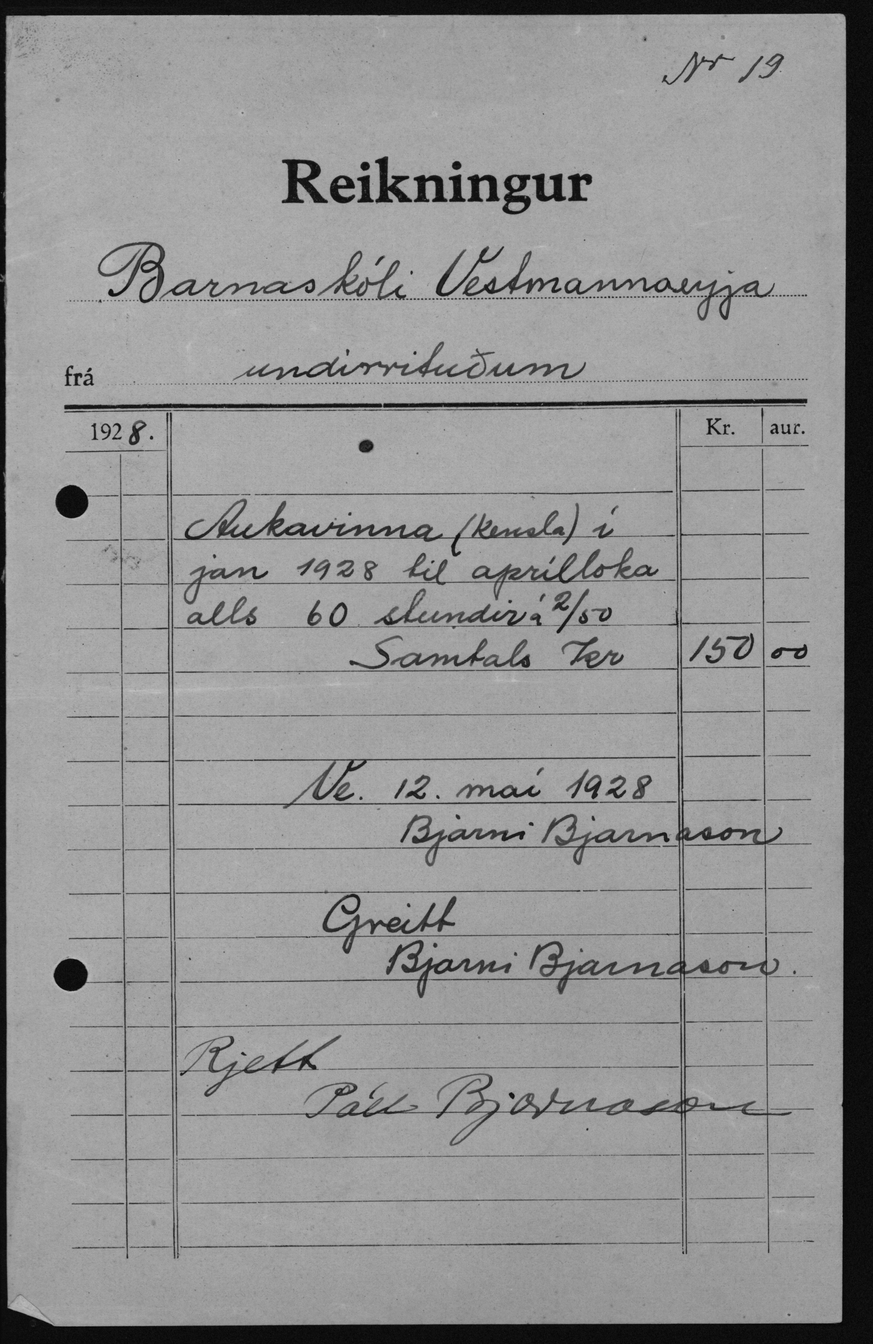 Nr 19
Reikningur
Barnaskóli Vestmannaeyja
frá undirrituðum
1928. Kr. aur.
Aukavinna (kensla) í
jan 1928 til aprílloka
alls 60 stundir á 2/50
Samtals Kr 150 00
Ve. 12. maí 1928
Bjarni Bjarnason
Greitt
Bjarni Bjarnason.
Rjett
Páll Bjarnason